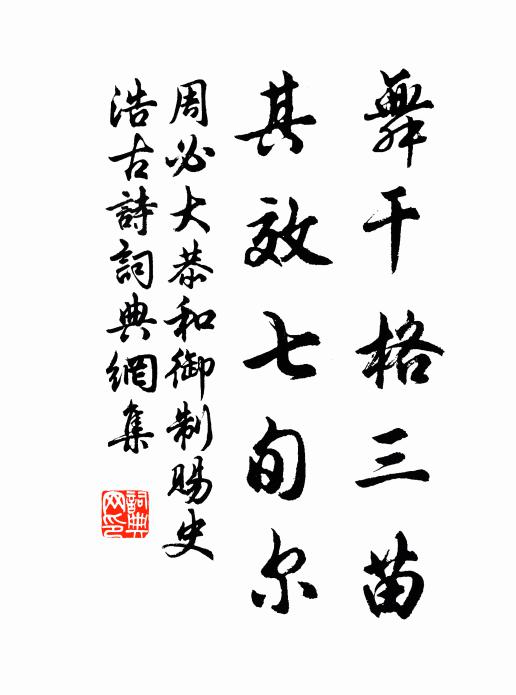 舞干格三苗
其效七旬尔
周必大恭和御制賜史
浩古詩詞典網集
詞典网印